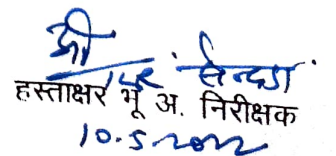 श्री
हस्ताक्षर भू अ. निरीक्षक
10.5.2022